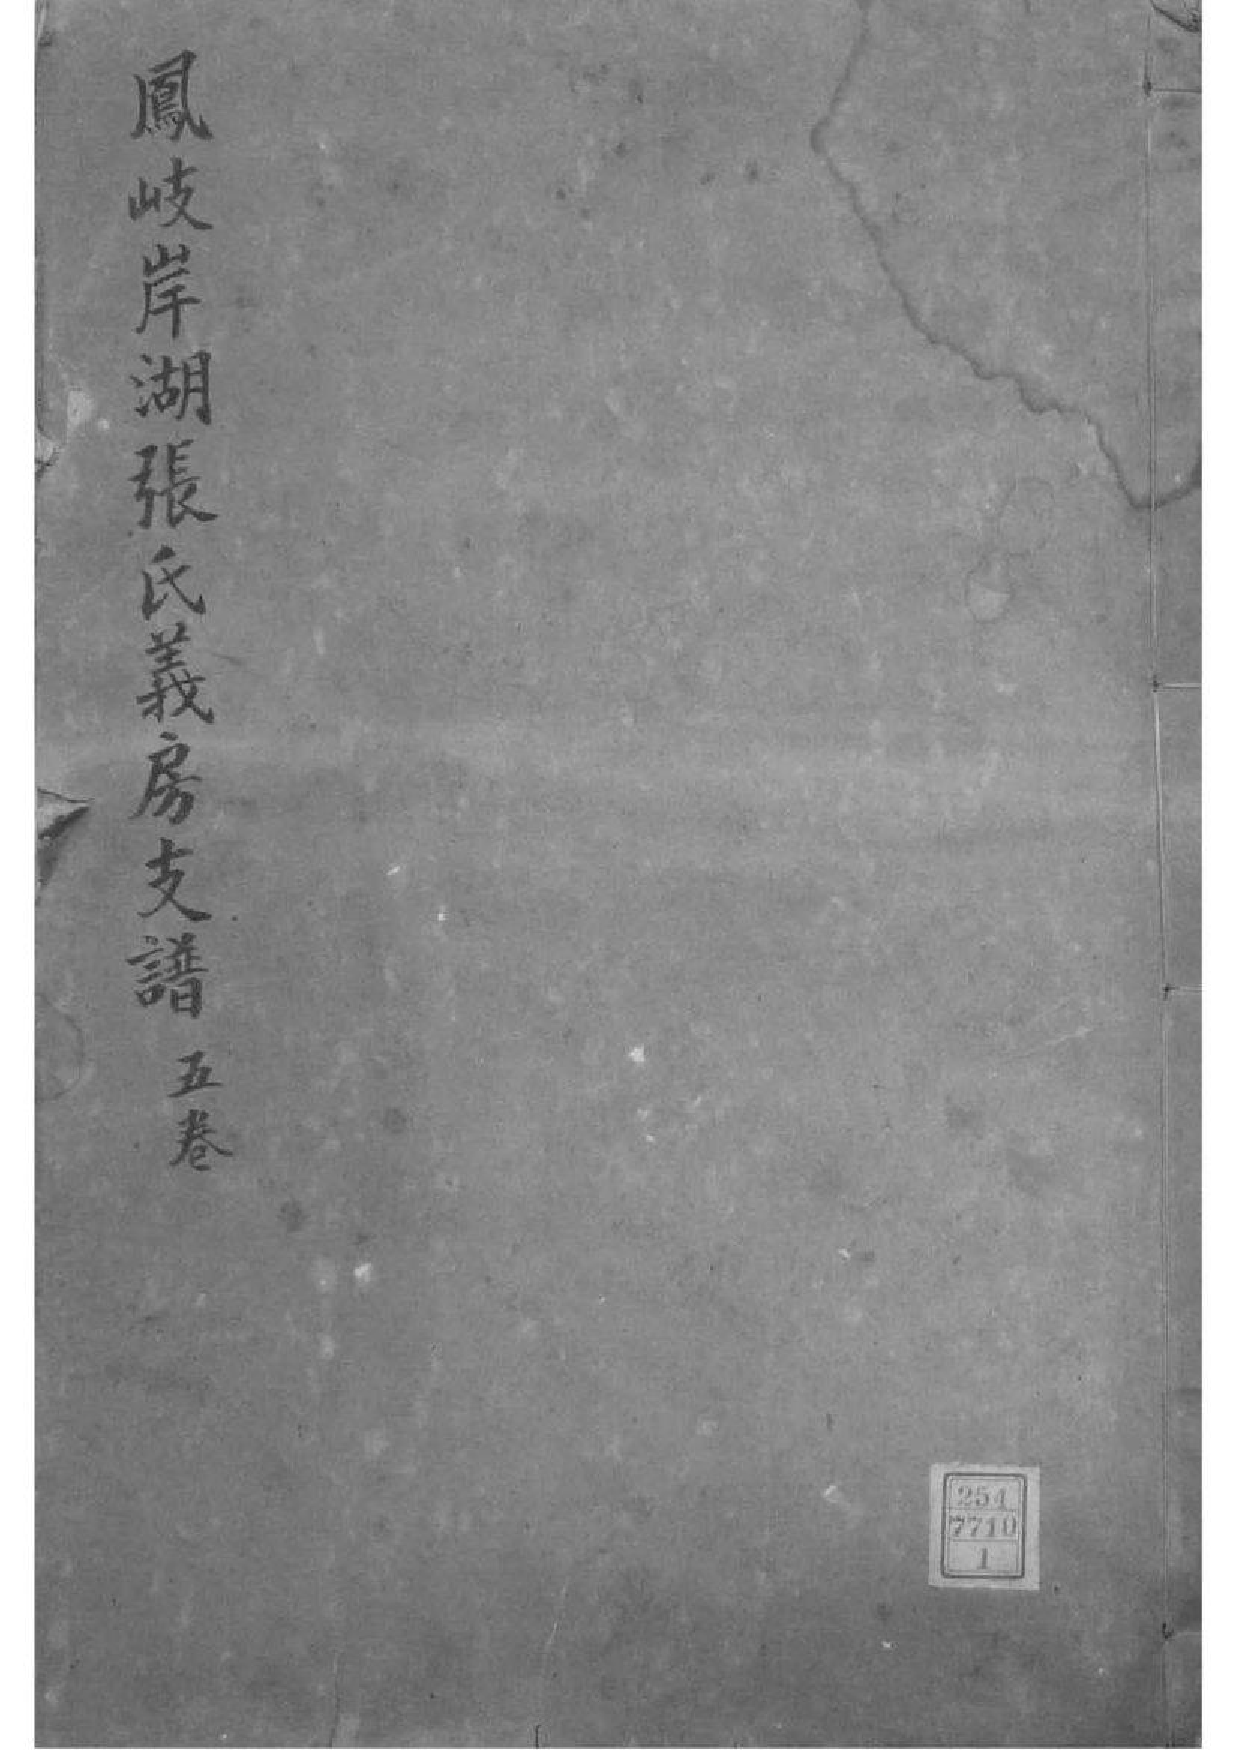 鳳岐岸湖張氏義房支譜
五卷
254
7710
1